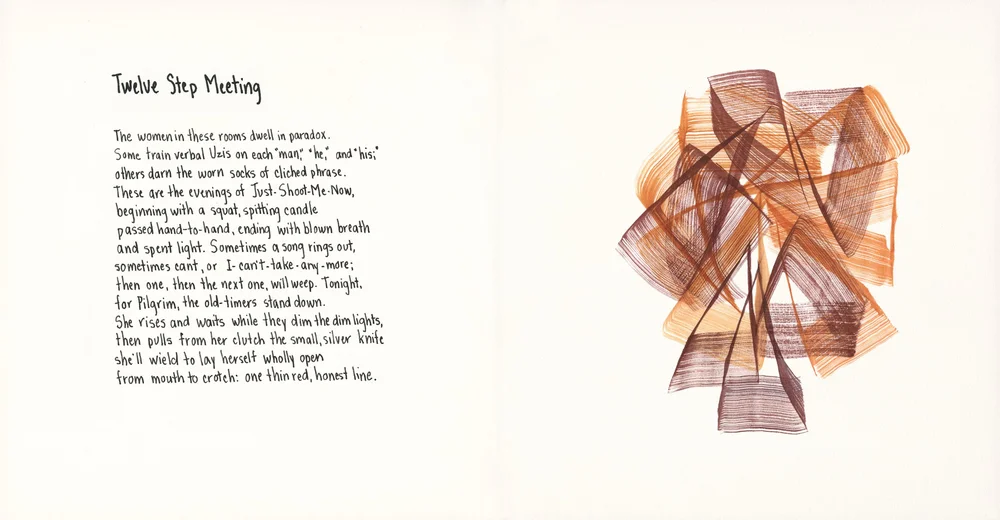 Twelve Step Meeting
The women in these rooms dwell in paradox.
Some train verbal Uzis on each "man," "he," and "his;"
others darn the worn socks of cliched phrase.
These are the evenings of Just-Shoot-Me-Now,
beginning with a squat, spitting candle
passed hand-to-hand, ending with blown breath
and spent light. Sometimes a song rings out,
sometimes cant, or I-can't-take-any-more;
then one, then the next one, will weep. Tonight,
for Pilgrim, the old-timers stand down.
She rises and waits while they dim the dim lights,
then pulls from her clutch the small, silver knife
she'll wield to lay herself wholly open
from mouth to crotch: one thin red, honest line.